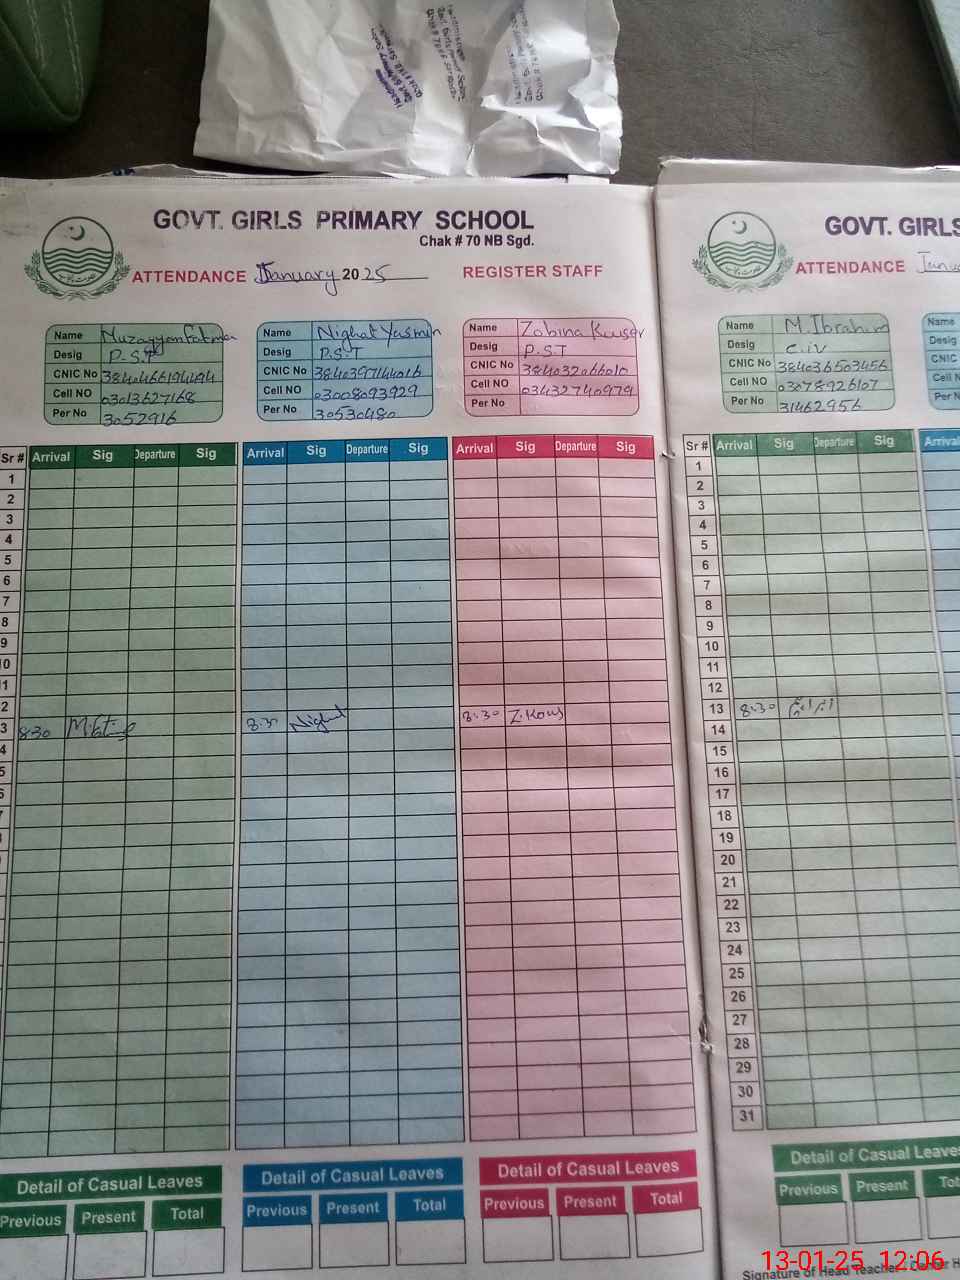 GOVT. GIRLS PRIMARY SCHOOL
Chak # 70 NB Sgd.
ATTENDANCE January 2025 REGISTER STAFF
Name Nuzayyan Fatma
Desig P.S.T
CNIC No
Cell NO 03013627168
Per No 3052916
Name Nighat Yasmin
Desig P.S.T
CNIC No 3840397144016
Cell NO 03008093929
Per No 30530480
Name Zobina Kuuser
Desig P.S.T
CNIC No 384032066010
Cell NO 03432740979
Per No
Sr # Arrival Sig Departure Sig Arrival Sig Departure Sig Arrival Sig Departure Sig
1
2
3
4
5
6
7
8
9
0
1
2
3 8:30 8:30 Nighat 8:30 Z.Kous
4
5
6
7
8
Detail of Casual Leaves Detail of Casual Leaves Detail of Casual Leaves
Previous Present Total Previous Present Total Previous Present Total
GOVT. GIRLS
ATTENDANCE
Name M. Ibrahim
Desig C.iv
CNIC No 384036503456
Cell NO 03078926107
Per No 31462956
Name
Desig
CNIC
Cell N
Per N
Sr # Arrival Sig Departure Sig Arrival
1
2
3
4
5
6
7
8
9
10
11
12
13 8:30 ابراہیم
14
15
16
17
18
19
20
21
22
23
24
25
26
27
28
29
30
31
Detail of Casual Leaves
Previous Present Tot
Signature of Head Teacher
13-01-25 12:06